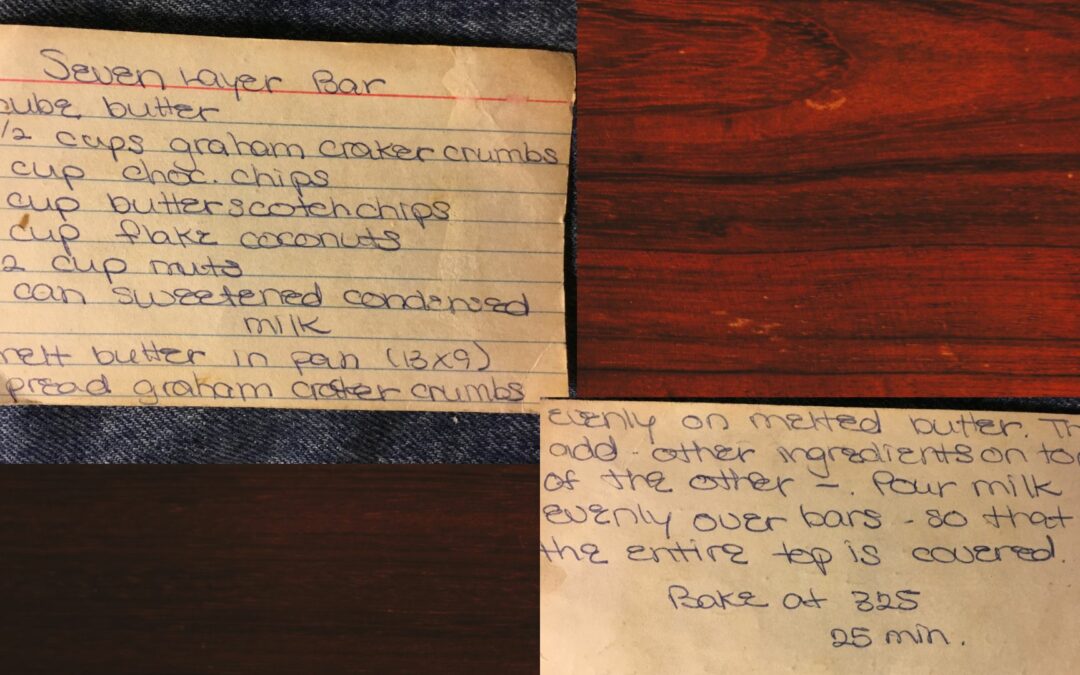 Seven Layer Bar
cube butter
1/2 cups graham craker crumbs
cup choc. chips
cup butterscotch chips
cup flake coconuts
2 cup nuts
can sweetened condensed
milk
melt butter in pan (13x9)
pread graham craker crumbs
evenly on melted butter. Th
add - other ingredients on top
of the other -. Pour milk
evenly over bars - so that
the entire top is covered.
Bake at 325
25 min.